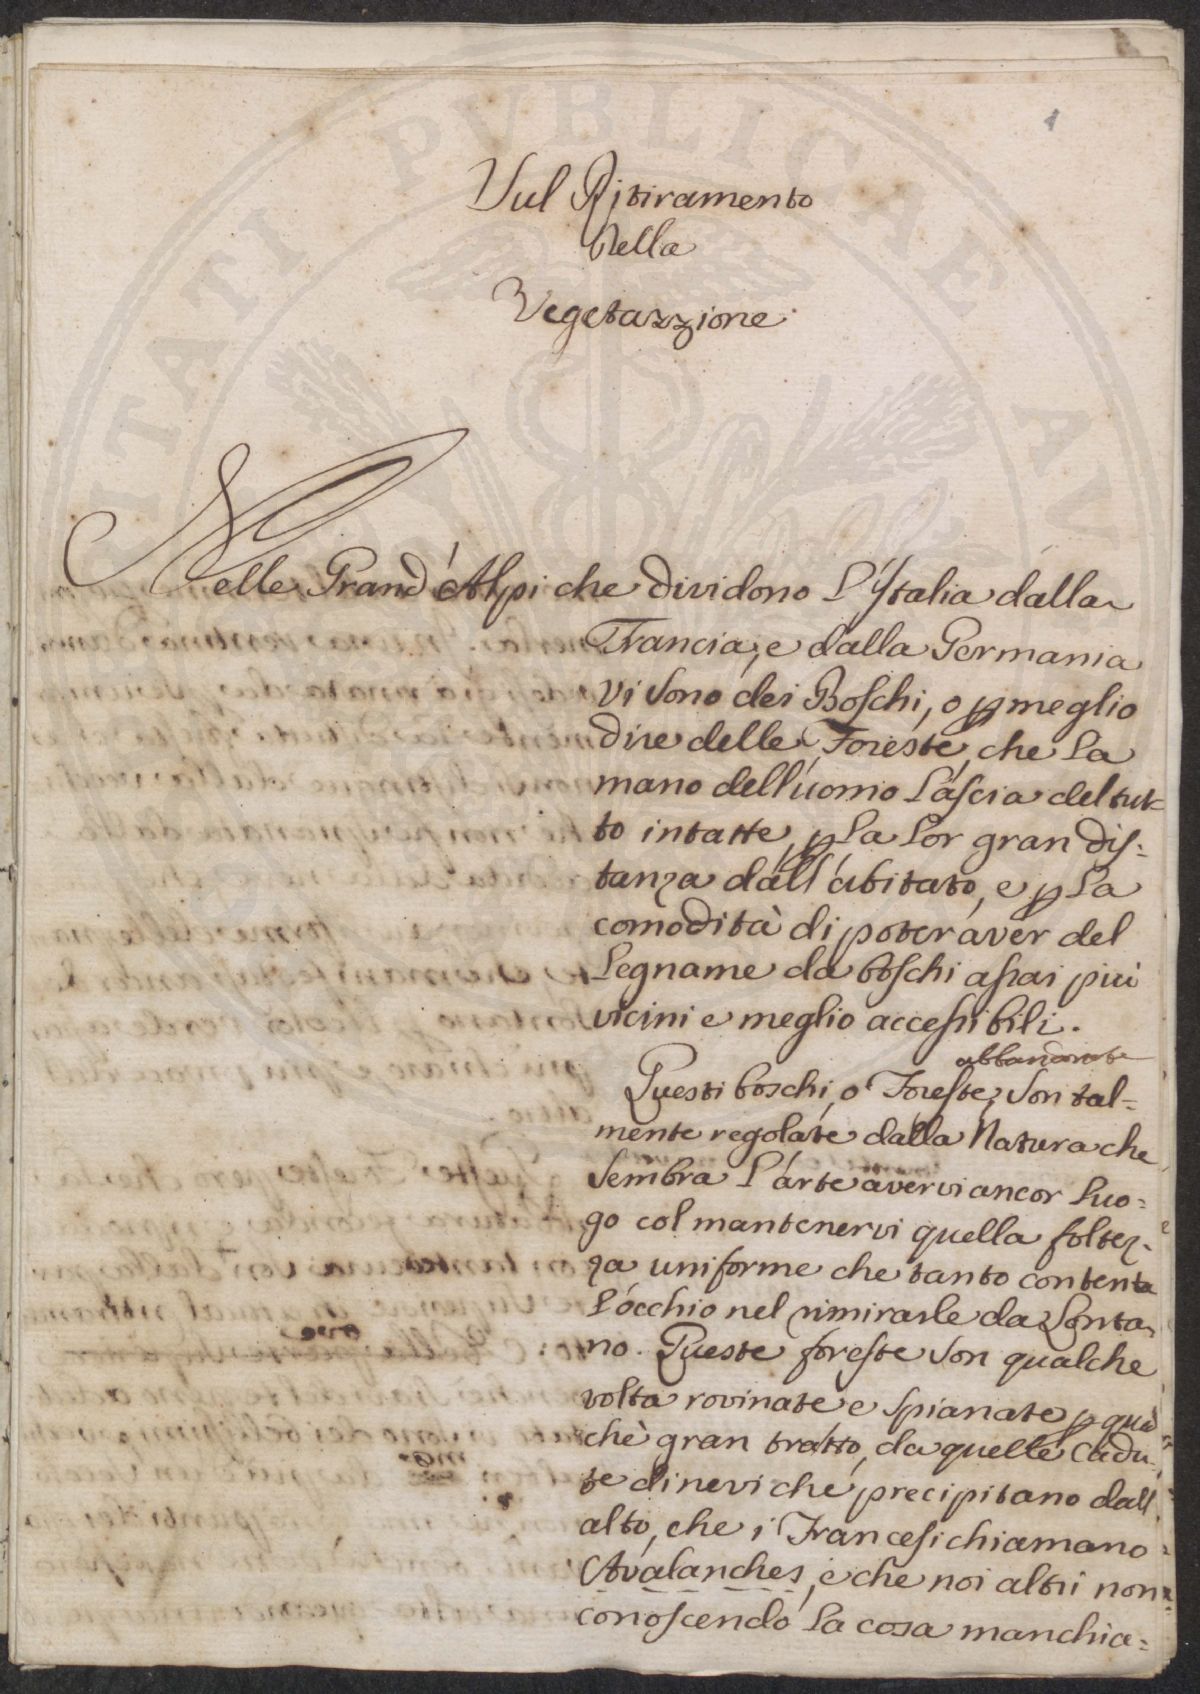 1
Sul Ritiramento
della
Vegetazzione
Nelle Grand'Alpi che dividono l'Italia dalla
Francia, e dalla Germania
vi sono dei Boschi, o p meglio
dire delle Foreste, che la
mano dell'uomo lascia deltut=
to intatte, p la lor gran dis=
tanza dall'abitato, e p la
comodità di poter aver del
Legname da boschi assai più
vicini e meglio accessibili.
abbandonate
Questi boschi, o Foreste, son tal=
mente regolate dalla Natura che
sembra l'arte avervi ancor luo=
go col mantenervi quella foltez=
za uniforme che tanto contenta
l'occhio nel rimirarle da Lonta
no. Queste foreste son qualche
volta rovinate e spianate p qual
chè gran tratto, da quelle cadu=
te di nevi che precipitano dall'
alto, che i Francesi chiamano
Avalanches, e che noi altri non
conoscendo la cosa manchia=